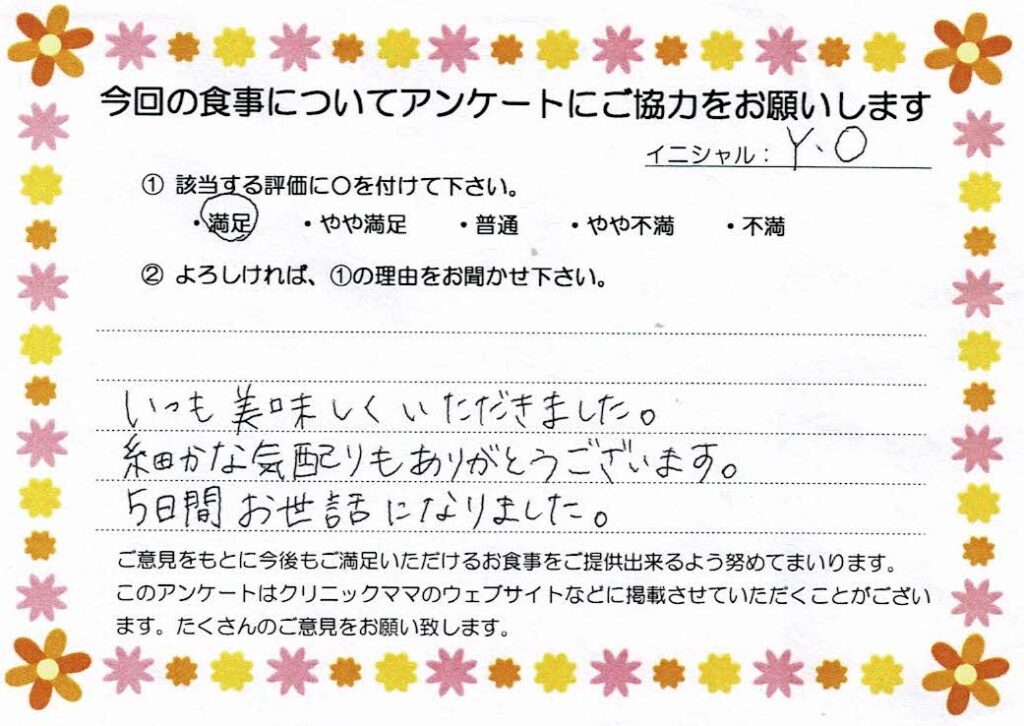 今回の食事についてアンケートにご協力をお願いします
イニシャル： Y、O
① 該当する評価に〇を付けて下さい。
・満足 ・やや満足 ・普通 ・やや不満 ・不満
② よろしければ、①の理由をお聞かせ下さい。
いつも美味しくいただきました。
細かな気配りもありがとうございます。
5日間お世話になりました。
ご意見をもとに今後もご満足いただけるお食事をご提供出来るよう努めてまいります。
このアンケートはクリニックママのウェブサイトなどに掲載させていただくことがござい
ます。たくさんのご意見をお願い致します。